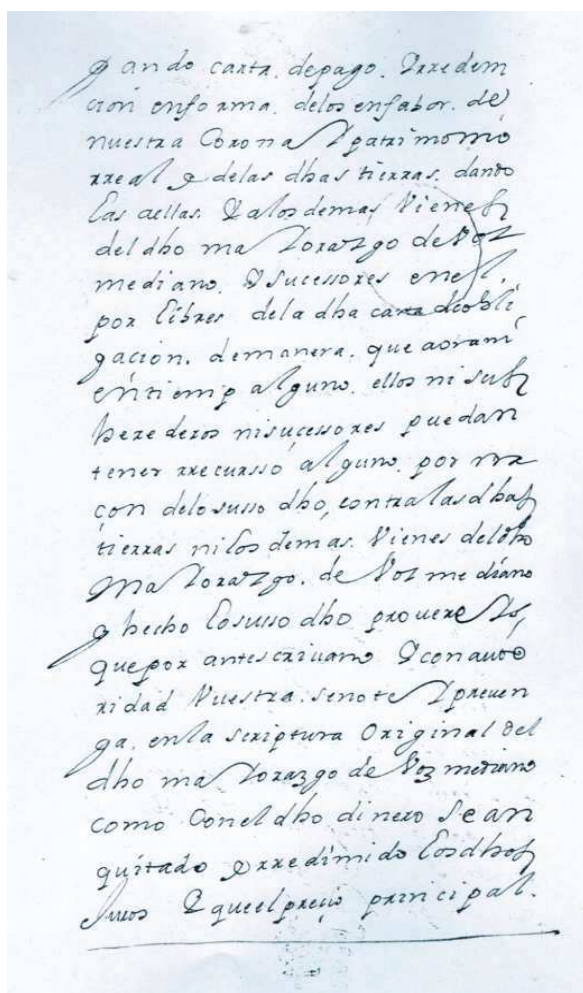 gando carta. depago. Yrredem
cion enforma. delos enfabor. de
nuestra Corona Y patrimonio
rreal y delas dhas tierras. dando
las aellas. Y alos demas Vienes
del dho maYorazgo de Voz
mediano. Y sucessores enel.
por libres dela dha carta deobli
gacion. demanera. que aorani
entiempo alguno. ellos ni sus
herederos nisucessores puedan
tener rrecursso alguno. por rra
çon delosusso dho, contra lasdhas
tierras nilos demas. Vienes deldho
MaYorazgo. de Voz mediano
y hecho losusso dho provereYs,
quepor antescrivano Y con auto
ridad Vuestra. senote Y preven
ga. enla scriptura Original del
dho maYorazgo de Voz mediano
como Conel dho dinero Se an
quitado Y rredimido los dhos
Juros Y queel preçio principal.